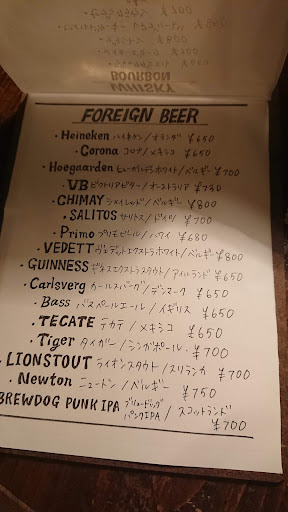 BOURBON
WHISKY
FOREIGN BEER
・Heineken ハイネケン/オランダ ¥650
・Corona コロナ/メキシコ ¥650
・Hoegaarden ヒューガルデンホワイト/ベルギー ¥700
・VB ビクトリアビター/オーストラリア ¥730
・CHIMAY シメイレッド/ベルギー ¥800
・SALITOS サリトス/ドイツ ¥700
・Primo プリモビール/ハワイ ¥680
・VEDETT ヴェデットエクストラホワイト/ベルギー ¥800
・GUINNESS ギネスエクストラスタウト/アイルランド ¥650
・Carlsverg カールスバーグ/デンマーク ¥650
・Bass バスペールエール/イギリス ¥650
・TECATE テカテ/メキシコ ¥650
・Tiger タイガー/シンガポール ¥700
・LIONSTOUT ライオンスタウト/スリランカ ¥700
・Newton ニュートン/ベルギー ¥750
BREWDOG PUNK IPA ブリュードッグ パンクIPA/スコットランド
¥700